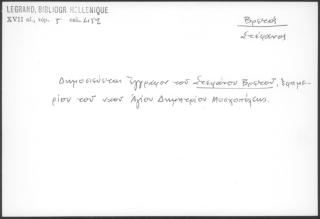 LEGRAND, BIBLIOGR. HELLENIQUE
XVII αἰ., τόμ. 5 σελ. 452
Βρετός
Στέφανος
Δημοσιεύεται ἔγγραφον τοῦ Στεφάνου Βρετοῦ, ἐφημε-
ρίου τοῦ ναοῦ Ἁγίου Δημητρίου Μοσχοπόλεως.